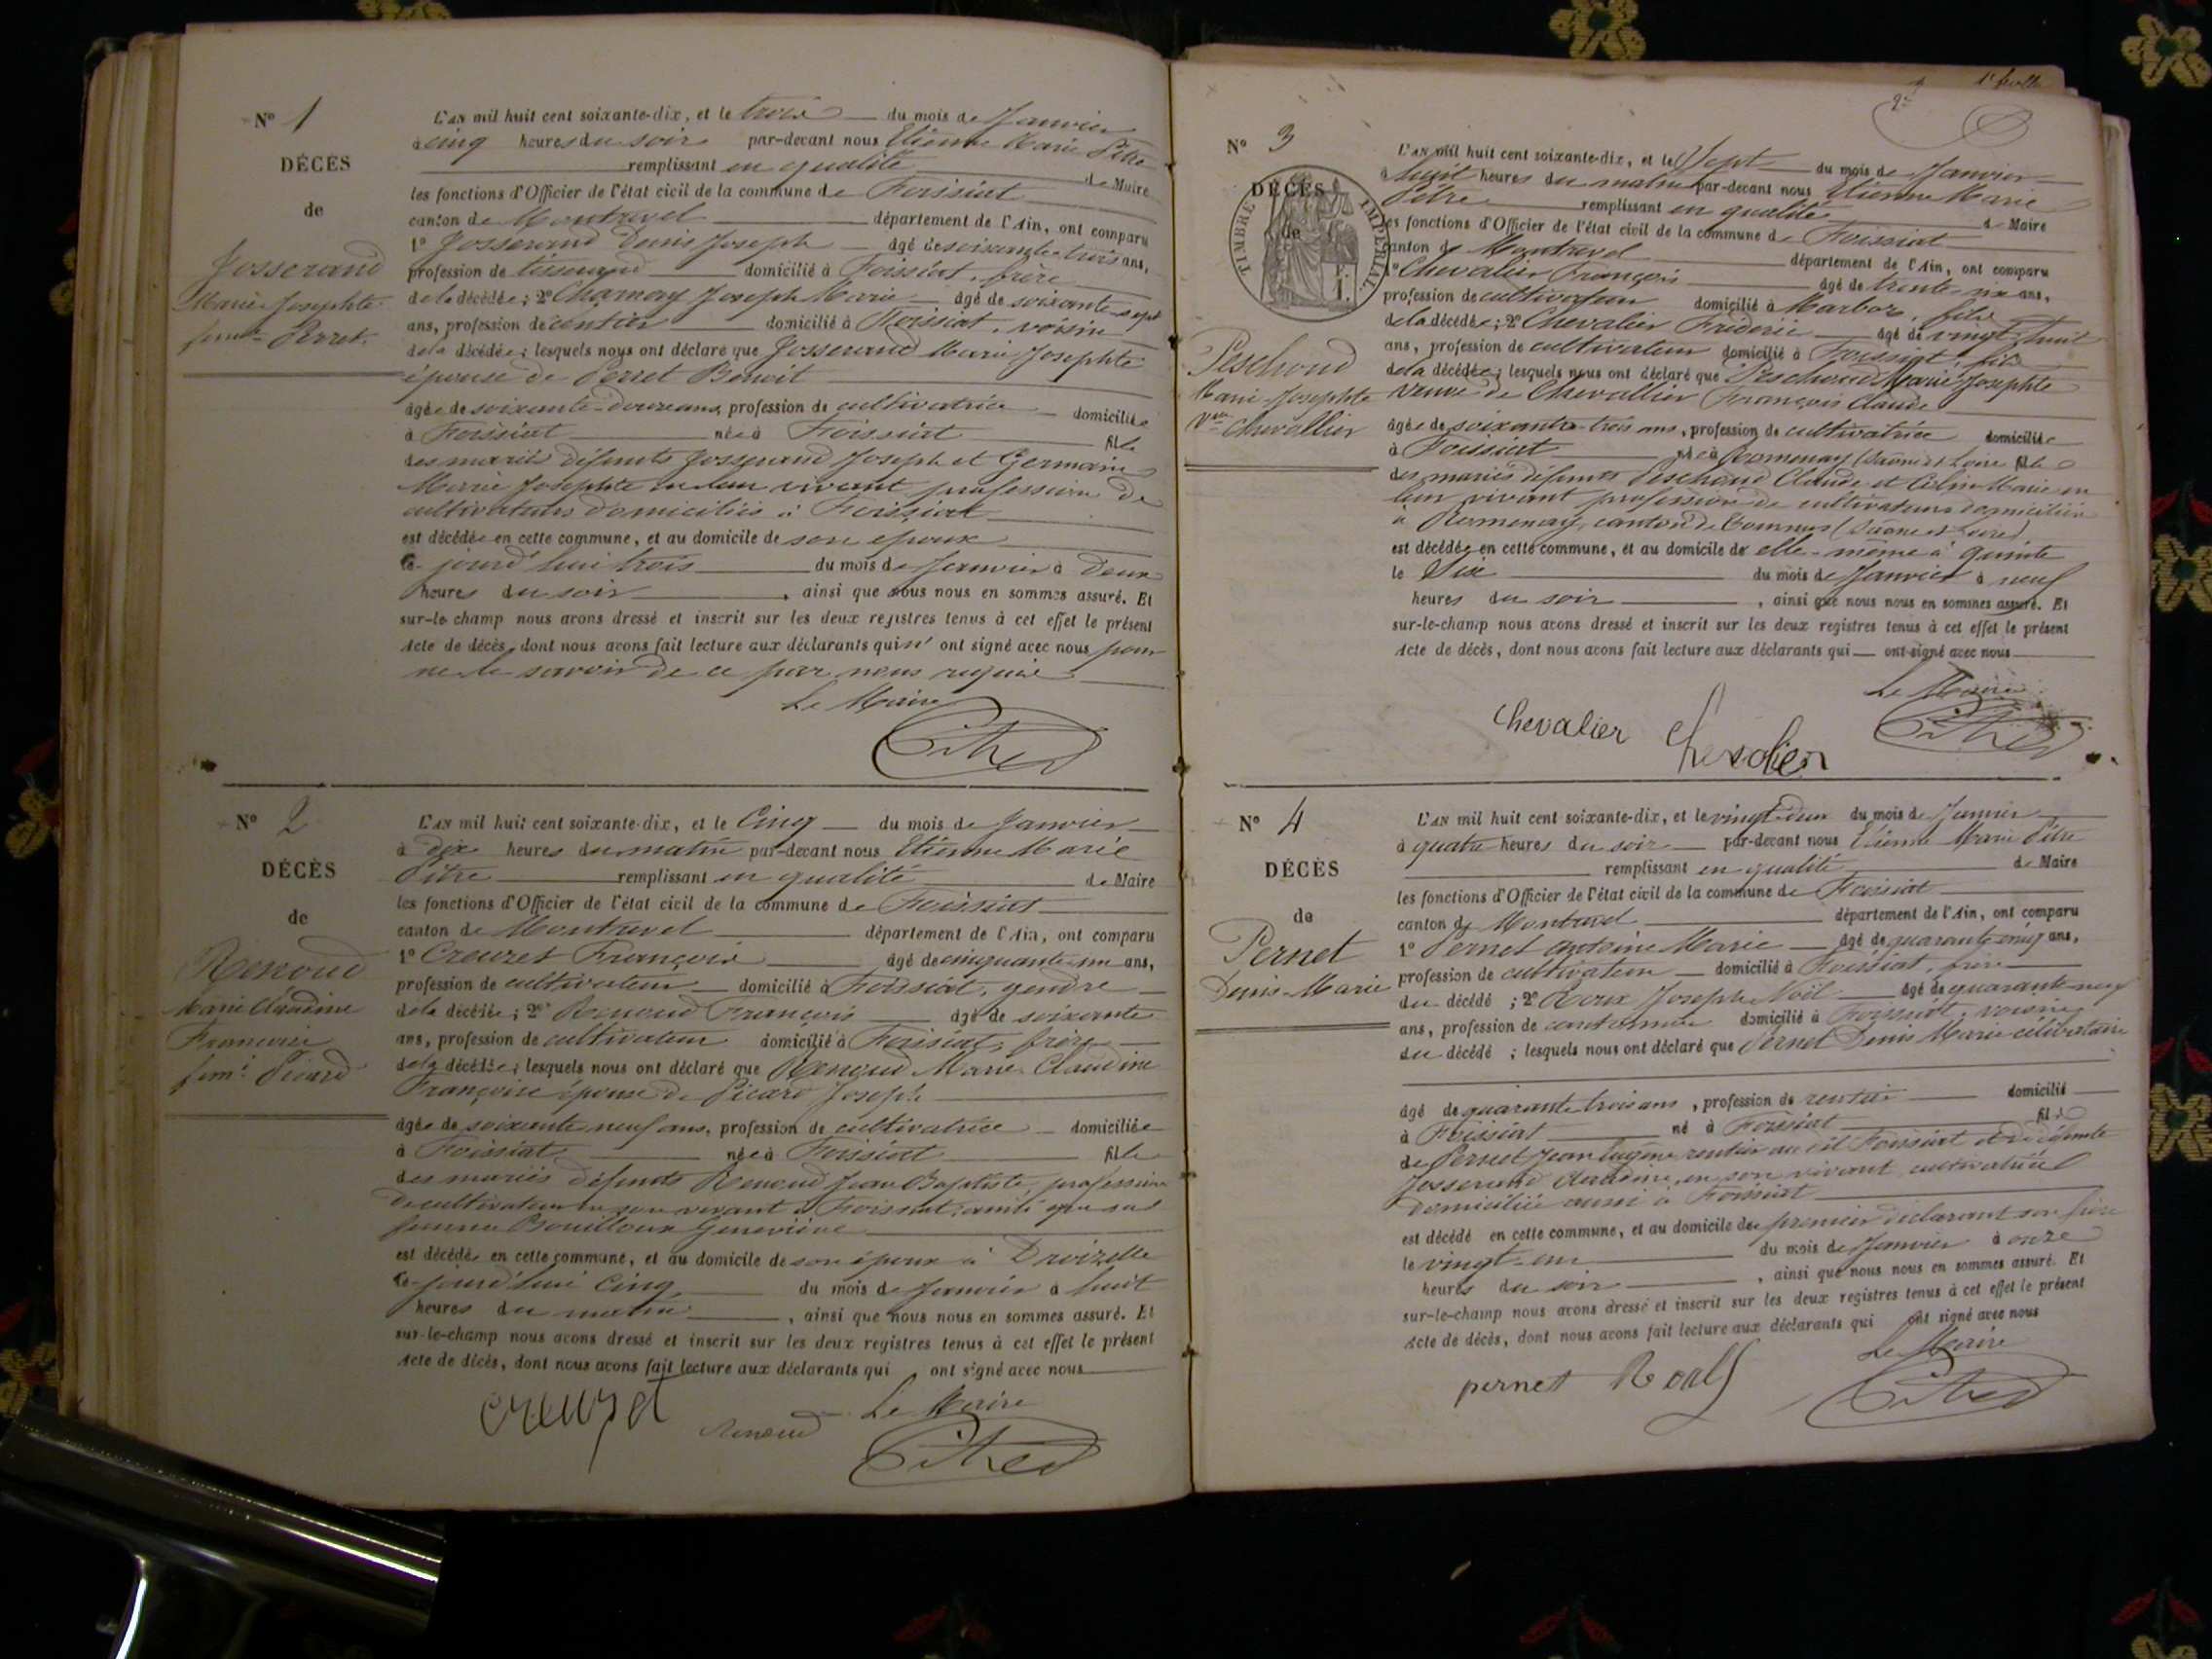 N° 1
DÉCÈS
de
Josserand
Marie Josephte
femme Perret
L'AN mil huit cent soixante-dix, et le trois du mois de Janvier
à cinq heures du soir par-devant nous Etienne Marie Pitre
remplissant en qualité de Maire
les fonctions d'Officier de l'état civil de la commune de Foissiat
canton de Montrevel département de l'Ain, ont comparu
1° Josserand Denis Joseph âgé de soixante trois ans,
profession de tisserand domicilié à Foissiat, frère
de la décédée; 2° Chamay Joseph Marie âgé de soixante-sept
ans, profession de rentier domicilié à Foissiat, voisin
de la décédée; lesquels nous ont déclaré que Josserand Marie Josephte
épouse de Perret Benoit
âgée de soixante-douze ans, profession de cultivatrice domiciliée
à Foissiat née à Foissiat fille
des mariés défunts Josserand Joseph et Germain
Marie Josephte en leur vivant profession de
cultivateurs domiciliés à Foissiat
est décédée en cette commune, et au domicile de son epoux
ce jourd'hui trois du mois de Janvier à Deux
heures du soir, ainsi que nous nous en sommes assuré. Et
sur-le-champ nous avons dressé et inscrit sur les deux registres tenus à cet effet le présent
Acte de décès, dont nous avons fait lecture aux déclarants qui n'ont signé avec nous pour
ne le savoir de ce par nous requis
Le Maire
Pitre
N° 2
DÉCÈS
de
Renoud
Marie Claudine
Françoise
fem. Picard
L'AN mil huit cent soixante-dix, et le Cinq du mois de Janvier
à dix heures du matin par-devant nous Etienne Marie
Pitre remplissant en qualité de Maire
les fonctions d'Officier de l'état civil de la commune de Foissiat
canton de Montrevel département de l'Ain, ont comparu
1° Creuzet François âgé de cinquante-un ans,
profession de cultivateur domicilié à Foissiat, gendre
de la décédée; 2° Renoud François âgé de soixante
ans, profession de cultivateur domicilié à Foissiat, frère
de la décédée; lesquels nous ont déclaré que Renoud Marie Claudine
Françoise épouse de Picard Joseph
âgée de soixante neuf ans, profession de cultivatrice domiciliée
à Foissiat née à Foissiat fille
des mariés défunts Renoud Jean Baptiste, profession
de cultivateur en son vivant à Foissiat, ainsi que sa
femme Bouilloux Geneviève
est décédée en cette commune, et au domicile de son époux à Droizelle
ce-jourd'hui cinq du mois de Janvier à huit
heures du matin, ainsi que nous nous en sommes assuré. Et
sur-le-champ nous avons dressé et inscrit sur les deux registres tenus à cet effet le présent
Acte de décès, dont nous avons fait lecture aux déclarants qui ont signé avec nous
Le Maire
creuzet Renoud Pitre
N° 3
DÉCÈS
de
TIMBRE IMPÉRIAL
Peschoud
Marie Josephte
Vve Chevallier
L'AN mil huit cent soixante-dix, et le Sept du mois de Janvier
à huit heures du matin par-devant nous Etienne Marie
Pitre remplissant en qualité de Maire
les fonctions d'Officier de l'état civil de la commune de Foissiat
canton de Montrevel département de l'Ain, ont comparu
1° Chevalier François âgé de trente six ans,
profession de cultivateur domicilié à Marboz, fils
de la décédée; 2° Chevalier Frédéric âgé de vingt-huit
ans, profession de cultivateur domicilié à Foissiat, fils
de la décédée; lesquels nous ont déclaré que Peschoud Marie Josephte
veuve de Chevallier François Claude
âgée de soixante-trois ans, profession de cultivatrice domiciliée
à Foissiat née à Romenay (Saône et Loire) fille
des mariés défunts Peschoud Claude et Marie en
leur vivant profession de cultivateurs domiciliés
à Romenay, canton de Tournus (Saône et Loire)
est décédée en cette commune, et au domicile de elle-même à
le Six du mois de Janvier à neuf
heures du soir, ainsi que nous nous en sommes assuré. Et
sur-le-champ nous avons dressé et inscrit sur les deux registres tenus à cet effet le présent
Acte de décès, dont nous avons fait lecture aux déclarants qui ont signé avec nous
Le Maire
Chevalier Chevalier Pitre
N° 4
DÉCÈS
de
Pernet
Denis-Marie
L'AN mil huit cent soixante-dix, et le vingt-deux du mois de Janvier
à quatre heures du soir par-devant nous Etienne Marie Pitre
remplissant en qualité de Maire
les fonctions d'Officier de l'état civil de la commune de Foissiat
canton de Montrevel département de l'Ain, ont comparu
1° Pernet Antoine Marie âgé de quarante cinq ans,
profession de cultivateur domicilié à Foissiat, frère
du décédé; 2° Roux Joseph Noël âgé de quarante neuf
ans, profession de cantonnier domicilié à Foissiat, voisin
du décédé; lesquels nous ont déclaré que Pernet Denis Marie célibataire
âgé de quarante trois ans, profession de rentier domicilié
à Foissiat né à Foissiat fils
de Pernet Jean Eugène rentier au dit Foissiat et de défunte
Josserand Claudine, en son vivant cultivatrice
domiciliée aussi à Foissiat
est décédé en cette commune, et au domicile du premier déclarant son frère
le vingt-un du mois de Janvier à onze
heures du soir, ainsi que nous nous en sommes assuré. Et
sur-le-champ nous avons dressé et inscrit sur les deux registres tenus à cet effet le présent
Acte de décès, dont nous avons fait lecture aux déclarants qui ont signé avec nous
Le Maire
pernet Pitre